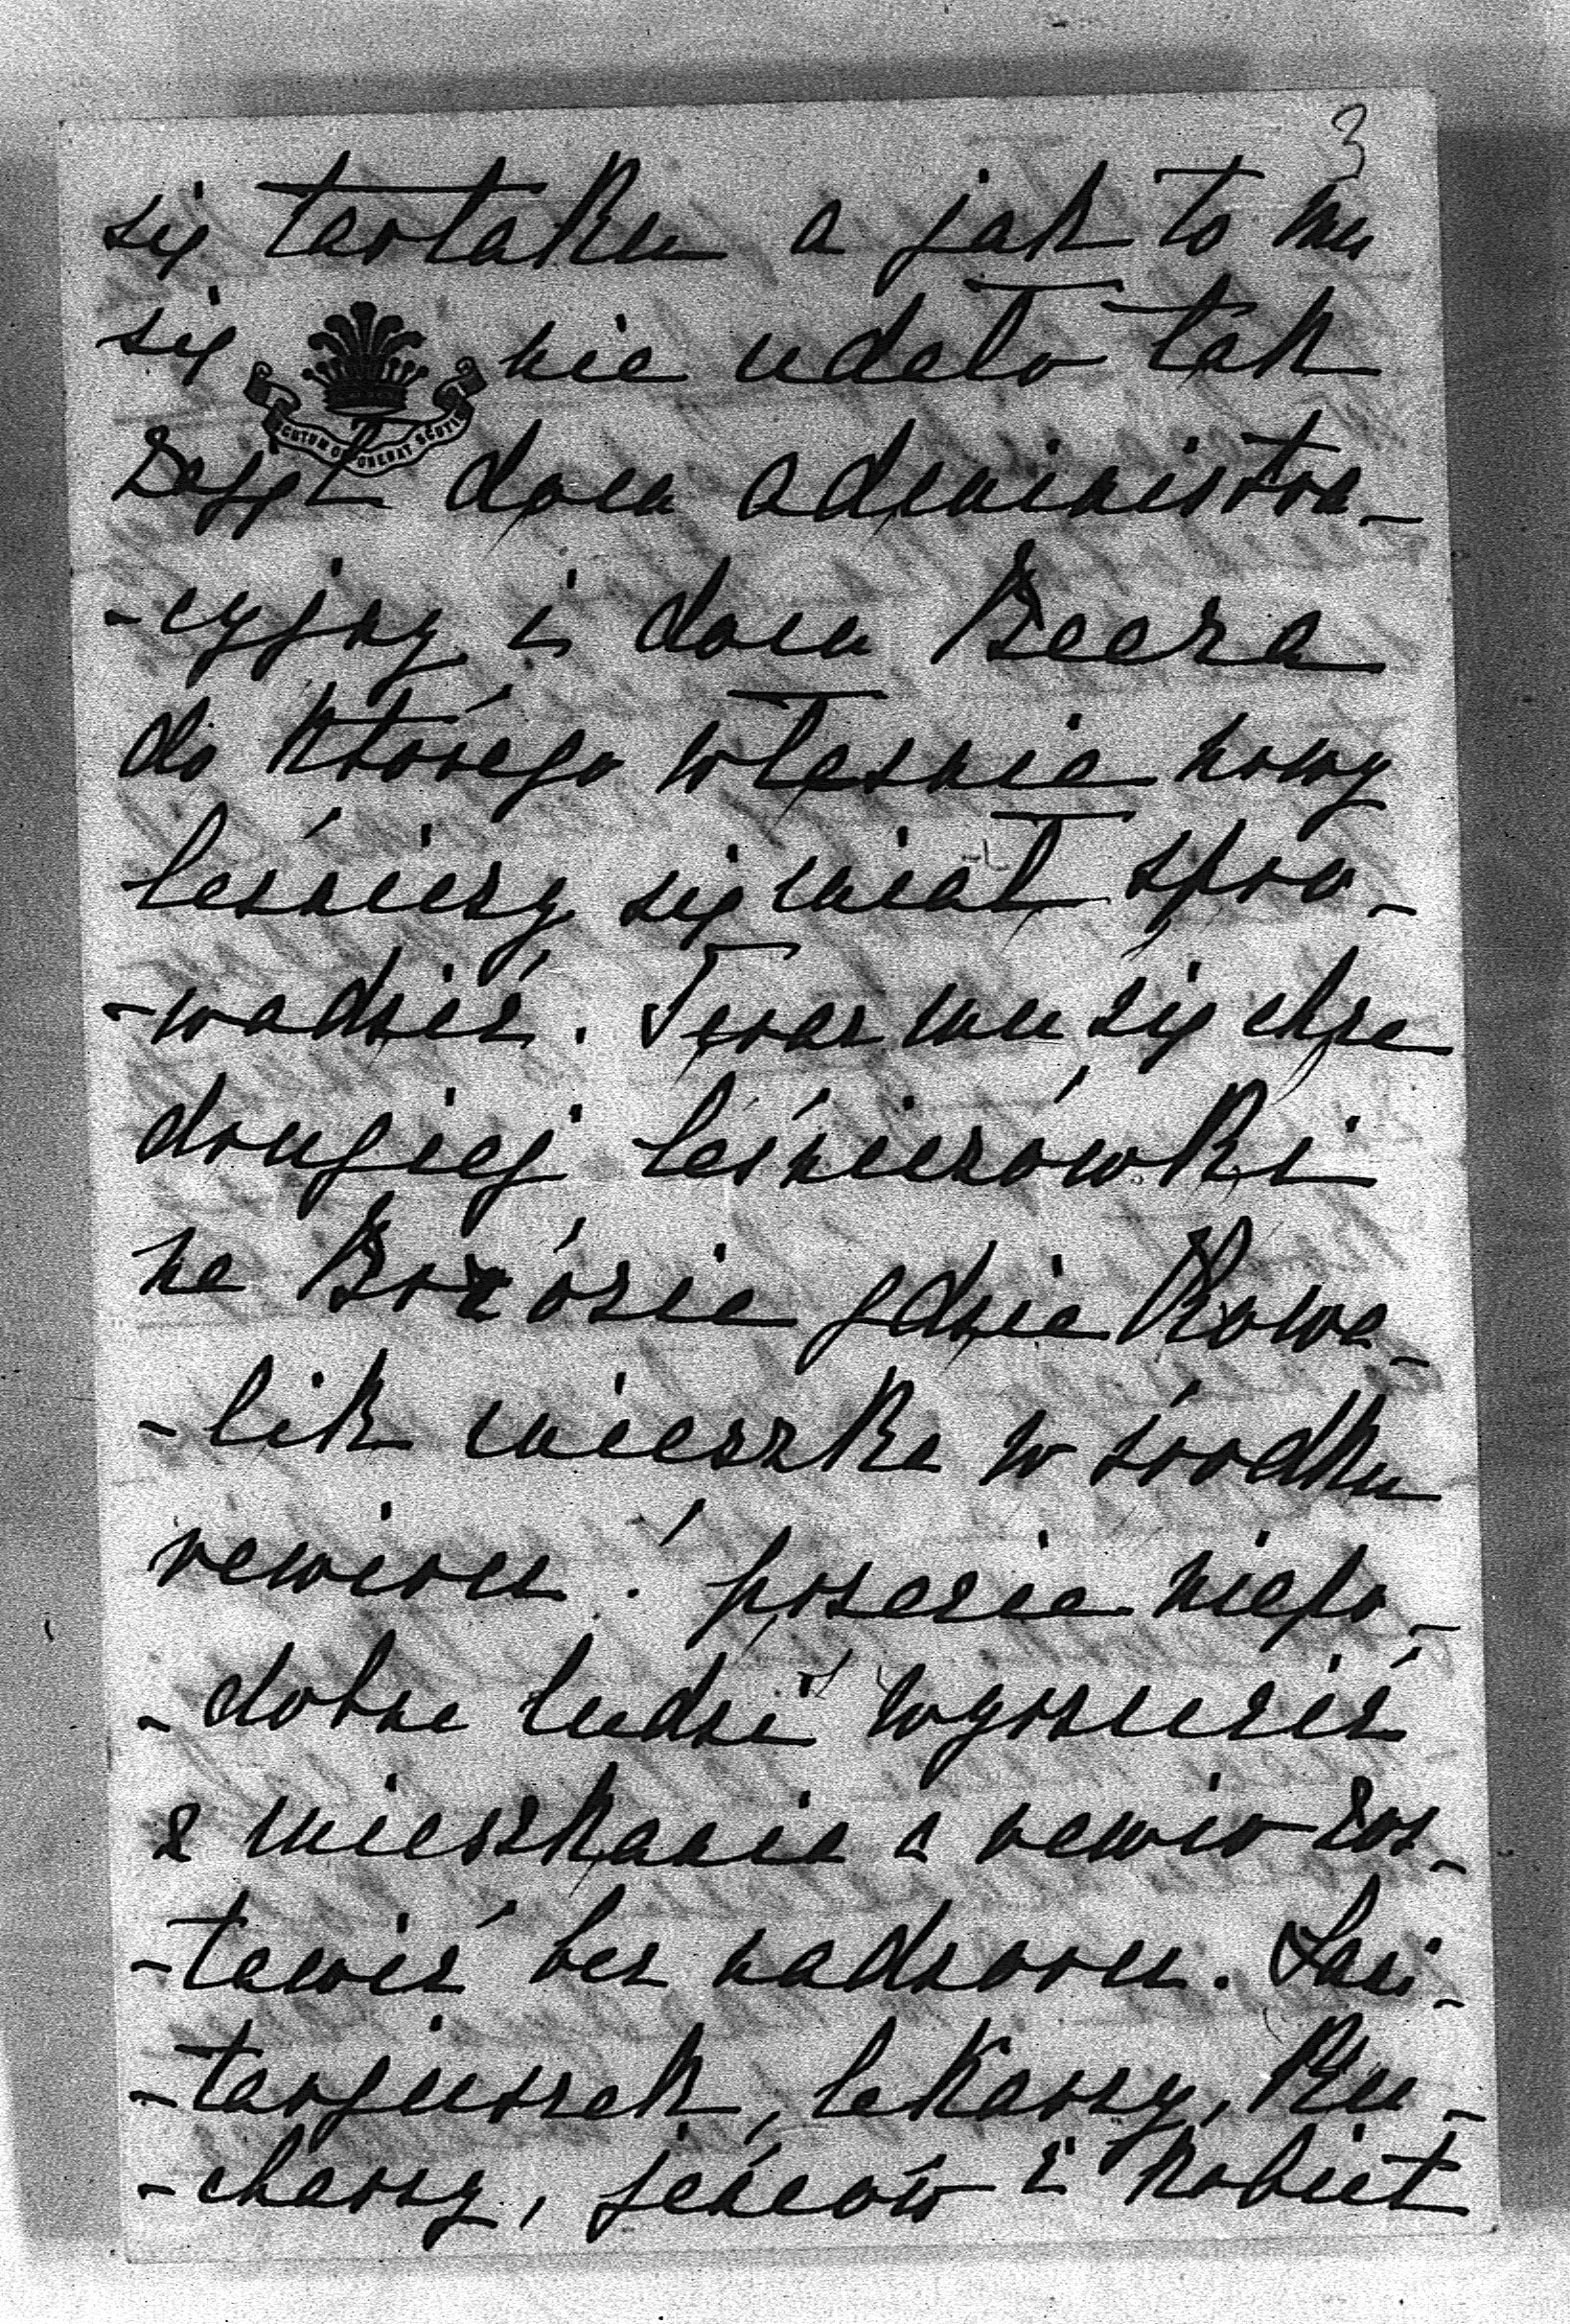 3
się tartaku a jak to mu
się nie udało tak
zajął dom administra-
-cyjny i dom Beera
do którego właśnie nowy
leśniczy się miał spro-
-wadzić. Teraz mu się chce
drugiej leśniczówki
na Brzózie gdzie Kowa-
-lik mieszka w środku
rewiru. Przecie niepo-
-dobna ludzi wyrzucić
z mieszkania a rewir zos-
-tawić bez nadzoru. Sani-
-tarjuszek, lekarzy, ku-
-charzy, jeńców i kobiet